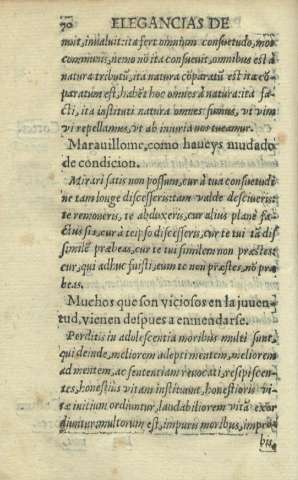 70 ELEGANCIAS DE
uit, inualuit: ita fert omniũm consuetudo, mos
communis, nemo nõ ita consueuit, omnibus est à
natura tributũ, ita natura cõparatũ est ita cõ-
paratum est, habẽt hoc omnes à natura: ita fa-
cti, ita instituti natura omnes sumus, vt vim
vi repellamus, vt ab iniuria nos tueamur.
Marauillome, como haueys mudado
de condicion.
Mirari satis non possum, cur à tua consuetudi
ne tam longe discesseris: tam valde desciueris:
te remoueris, te abduxeris, cur alius planè fa-
ctus sis, cur à teipso discesseris, cur te tui tã dis
similẽ præbeas, cur te tui similem non præstes:
cur, qui adhuc fuisti, eum te non præstes, nõ præ
beas.
Muchos que son viciosos en la juuen-
tud, vienen despues a enmendarse.
Perditis in adolescentia moribus multi sunt,
qui deinde, meliorem adepti mentem, meliorem
ad mentem, ac sententiam reuocati, resipiscen-
tes, honestius vitam instituunt, honestioris vi-
tæ initium ordiuntur, laudabiliorem vitã exor
diuntur: multorum est, impuris moribus, impro
bis,